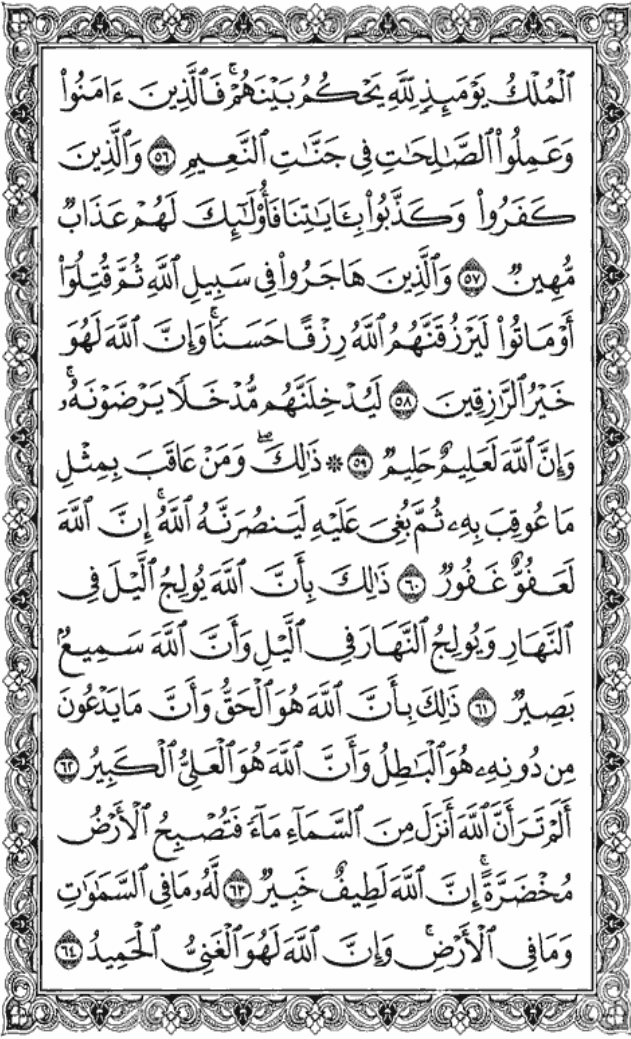 ٱلْمُلْكُ يَوْمَئِذٍ لِّلَّهِ يَحْكُمُ بَيْنَهُمْ ۚ فَٱلَّذِينَ ءَامَنُوا۟
وَعَمِلُوا۟ ٱلصَّٰلِحَٰتِ فِى جَنَّٰتِ ٱلنَّعِيمِ ٥٦ وَٱلَّذِينَ
كَفَرُوا۟ وَكَذَّبُوا۟ بِـَٔايَٰتِنَا فَأُو۟لَٰٓئِكَ لَهُمْ عَذَابٌ
مُّهِينٌ ٥٧ وَٱلَّذِينَ هَاجَرُوا۟ فِى سَبِيلِ ٱللَّهِ ثُمَّ قُتِلُوٓا۟
أَوْ مَاتُوا۟ لَيَرْزُقَنَّهُمُ ٱللَّهُ رِزْقًا حَسَنًا ۚ وَإِنَّ ٱللَّهَ لَهُوَ
خَيْرُ ٱلرَّٰزِقِينَ ٥٨ لَيُدْخِلَنَّهُم مُّدْخَلًا يَرْضَوْنَهُۥ ۗ
وَإِنَّ ٱللَّهَ لَعَلِيمٌ حَلِيمٌ ٥٩ ۞ ذَٰلِكَ ۖ وَمَنْ عَاقَبَ بِمِثْلِ
مَا عُوقِبَ بِهِۦ ثُمَّ بُغِىَ عَلَيْهِ لَيَنصُرَنَّهُ ٱللَّهُ ۗ إِنَّ ٱللَّهَ
لَعَفُوٌّ غَفُورٌ ٦٠ ذَٰلِكَ بِأَنَّ ٱللَّهَ يُولِجُ ٱلَّيْلَ فِى
ٱلنَّهَارِ وَيُولِجُ ٱلنَّهَارَ فِى ٱلَّيْلِ وَأَنَّ ٱللَّهَ سَمِيعٌۢ
بَصِيرٌ ٦١ ذَٰلِكَ بِأَنَّ ٱللَّهَ هُوَ ٱلْحَقُّ وَأَنَّ مَا يَدْعُونَ
مِن دُونِهِۦ هُوَ ٱلْبَٰطِلُ وَأَنَّ ٱللَّهَ هُوَ ٱلْعَلِىُّ ٱلْكَبِيرُ ٦٢
أَلَمْ تَرَ أَنَّ ٱللَّهَ أَنزَلَ مِنَ ٱلسَّمَآءِ مَآءً فَتُصْبِحُ ٱلْأَرْضُ
مُخْضَرَّةً ۗ إِنَّ ٱللَّهَ لَطِيفٌ خَبِيرٌ ٦٣ لَّهُۥ مَا فِى ٱلسَّمَٰوَٰتِ
وَمَا فِى ٱلْأَرْضِ ۗ وَإِنَّ ٱللَّهَ لَهُوَ ٱلْغَنِىُّ ٱلْحَمِيدُ ٦٤